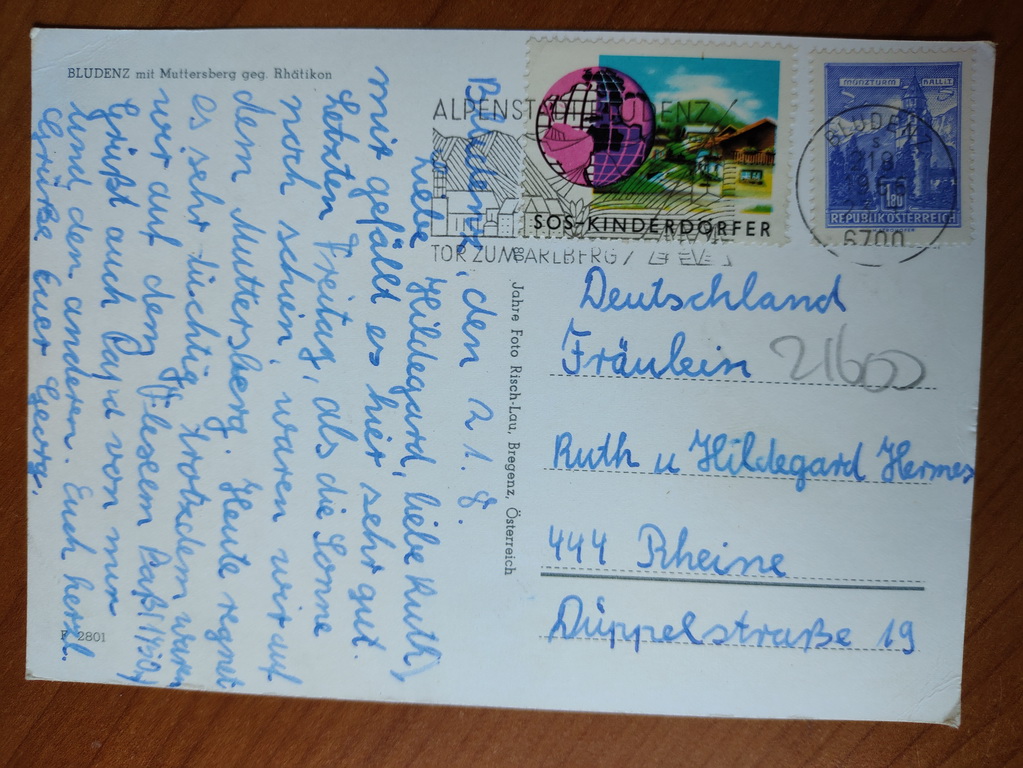 BLUDENZ mit Muttersberg geg. Rhätikon
Bludenz, den 21.8.
Liebe Hildegard, liebe Ruth!
mir gefällt es hier sehr gut.
Letzten Freitag, als die Sonne
noch schien, waren wir auf
dem Muttersberg. Heute regnet
es sehr tüchtig trotzdem waren
wir auf dem
Grüßt auch Papa von mir
und den anderen. Euch herzl.
Grüße Euer Georg.
F 2801
Jahre Foto Risch-Lau, Bregenz, Österreich
ALPENSTADT BLUDENZ /
TOR ZUM ARLBERG /
SOS KINDERDÖRFER
MÜNZTURM HALL I.T.
1.80
REPUBLIK ÖSTERREICH
BLUDENZ
6700
Deutschland
Fräulein
21600
Ruth u Hildegard Hermes
444 Rheine
Düppelstraße 19